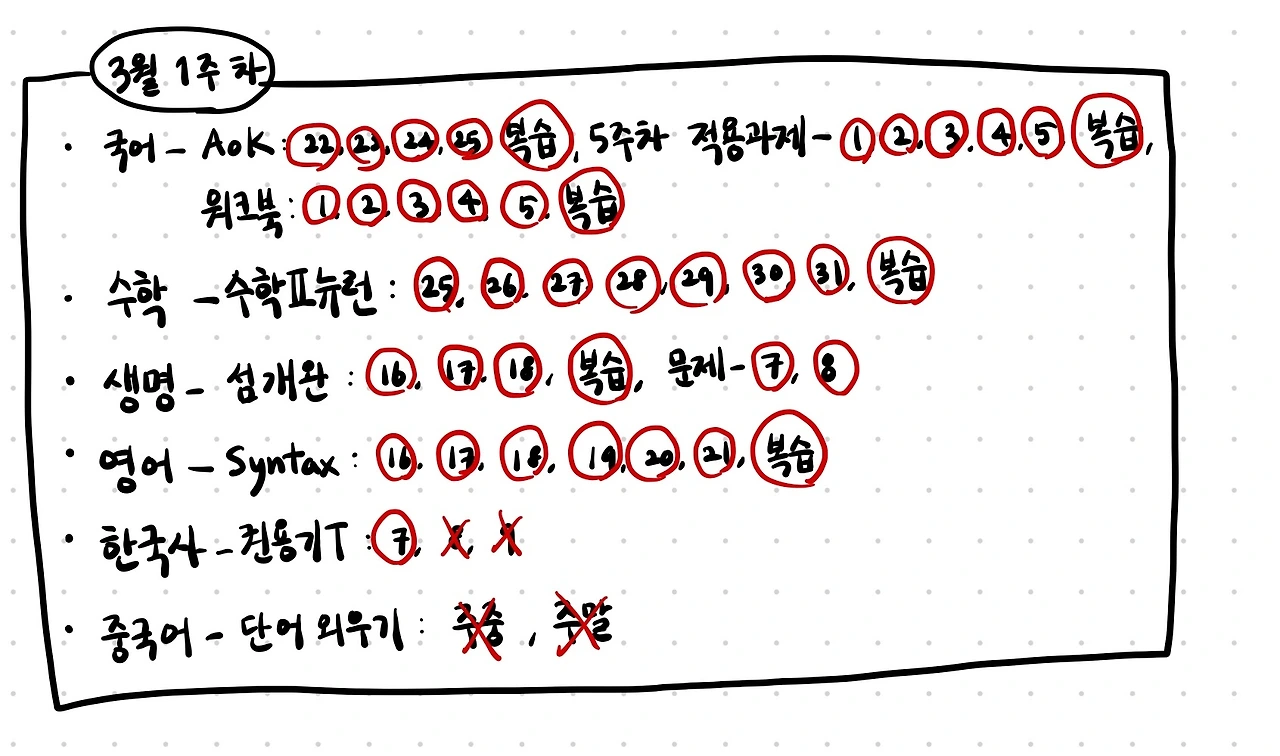 3월 1주차
· 국어 - AoK : 22, 23, 24, 25 복습, 5주차 적용과제 - 1 2, 3, 4, 5 복습,
워크북 : 1, 2, 3, 4, 5, 복습
· 수학 - 수학Ⅱ뉴런 : 25, 26, 27, 28, 29, 30, 31, 복습
· 생명 - 섬개완 : 16, 17, 18, 복습, 문제 - 7, 8
· 영어 - Syntax : 16, 17, 18, 19, 20, 21, 복습
· 한국사 - 권용기T : 7, 8, 9
· 중국어 - 단어 외우기 : 주중, 주말